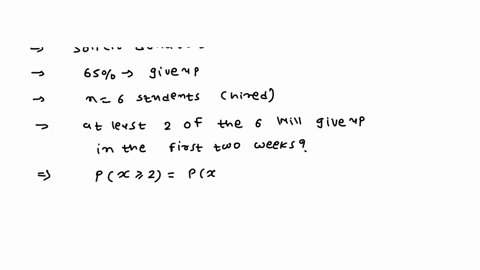 → 65% → give up
→ n = 6 students (hired)
→ at least 2 of the 6 will give up
in the first two weeks?
⇒ P(x ≥ 2) = P(x